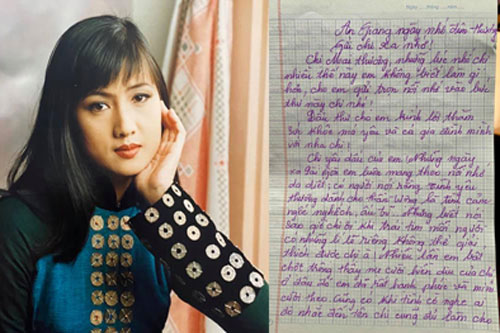 An Giang ngày nhớ tên thương
Gửi chị xa nhớ!
Chị Hoài thương, những lúc nhớ chị
nhiều thế này em không biết làm gì
hơn, cho em gửi trọn nỗi nhớ vào bức
thư này chị nhé!
Đầu thư cho em kính lời thăm
sức khỏe mẹ yêu và cả gia đình mình
với nha chị!
Chị yêu dấu của em! Những ngày
xa Sài Gòn em luôn mang theo nỗi nhớ
da diết; có người nói rằng tình yêu
thương dành cho thần tượng là tình cảm
ngốc nghếch, ấu trĩ. Nhưng biết nói
sao giờ chị ơi khi trái tim mỗi người
có những lí lẽ riêng không thể giải
thích được chị ạ! Nhiều lần em bất
chợt trông thấy nụ cười hiền dịu của chị
ở đâu đó em đã rất hạnh phúc và mỉm
cười theo. Cũng có khi tình cờ nghe ai
đó nhắc đến tên chị cũng đủ làm cho